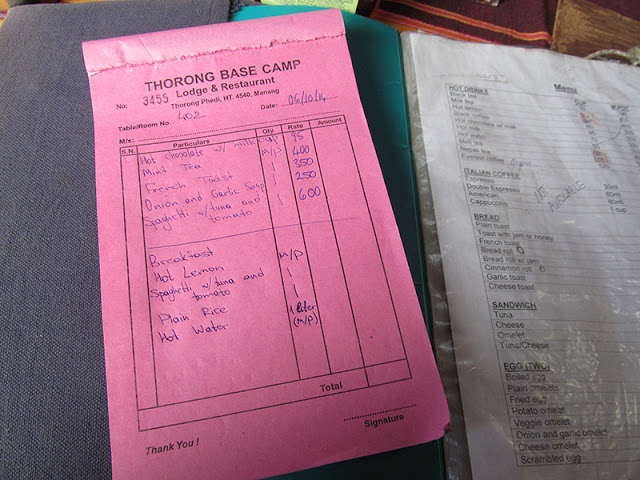 THORONG BASE CAMP
Lodge & Restaurant
No: 3455 Thorong Phedi, HT. 4540, Manang
Table/Room No. 402 Date: 06/10/14
M/s:
S.N. Particulars Qty. Rate Amount
Hot chocolate w/ milk cup 95
Mint Tea M/P 400
French Toast 1 350
Onion and Garlic Soup 1 250
Spaghetti w/tuna and 1 600
tomato
Breakfast
Hot Lemon M/P
Spaghetti w/tuna and 1
tomato
Plain Rice 1
Hot Water 1 liter
(M/P)
Total
Thank You !
Signature
Menu
HOT DRINKS
Black tea
Milk tea
Hot lemon
Black coffee
Hot chocolate w/ milk
Hot milk
Hot water
Mint tea
Nepali tea
Everest coffee
ITALIAN COFFEE
Espresso 30ml
Double Espresso 60ml
American 60ml
Cappuccino 1 cup
NOT AVAILABLE
BREAD
Plain toast
Toast with jam or honey
French toast
Bread roll
Bread roll w/ jam
Cinnamon roll
Garlic toast
Cheese toast
SANDWICH
Tuna
Cheese
Omelet
Tuna/Cheese
EGG (TWO)
Boiled egg
Plain omelet
Fried egg
Potato omelet
Veggie omelet
Onion and garlic omelet
Cheese omelet
Scrambled egg